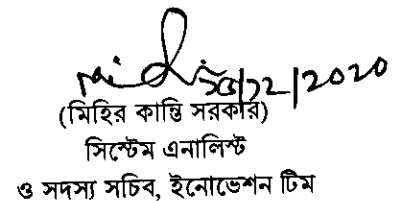 (মিহির কান্তি সরকার)
সিস্টেম এনালিস্ট
ও সদস্য সচিব, ইনোভেশন টিম